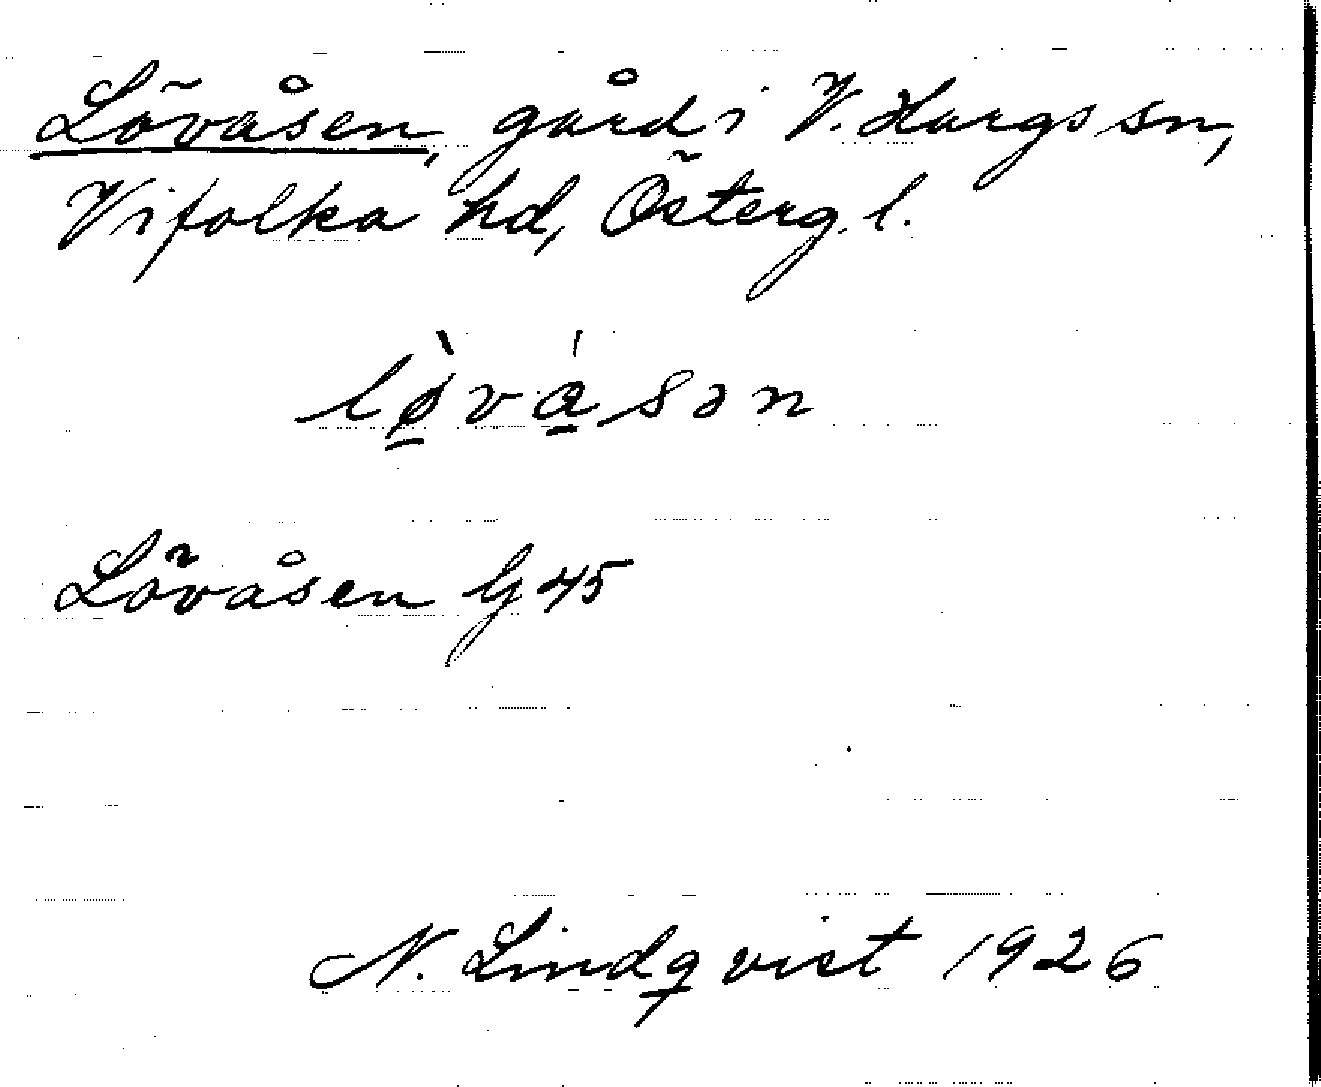 Lövåsen, gård i V. Hargs sn,
Vifolka hd, Österg. l.
lø̠̀vá̠sən
Lövåsen G 45
N. Lindqvist 1926